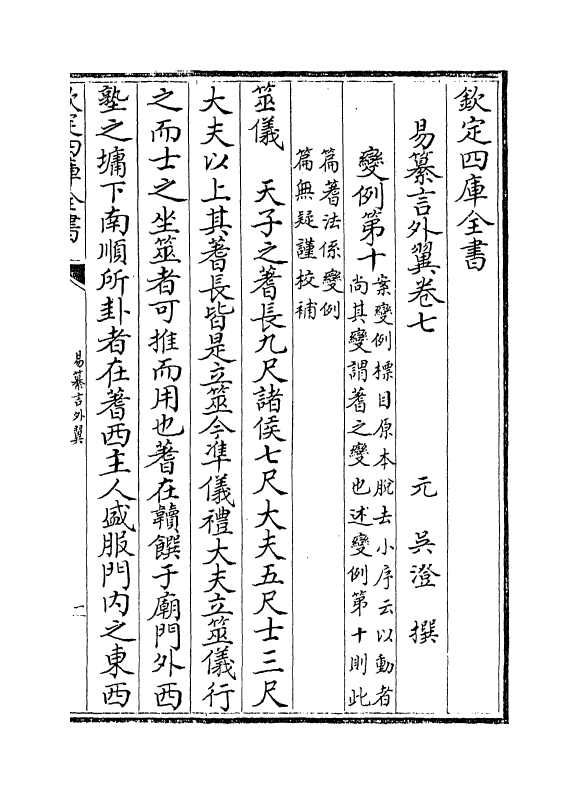 欽定四庫全書
易纂言外翼卷七
元 吳澄 撰
變例第十
案變例標目原本脫去小序云以動者
尚其變謂蓍之變也述變例第十則此
篇蓍法係變例
篇無疑謹校補
筮儀 天子之蓍長九尺諸侯七尺大夫五尺士三尺
大夫以上其蓍長皆是立筮今準儀禮大夫立筮儀行
之而士之坐筮者可推而用也蓍在韇饌于廟門外西
塾之墉下南順所卦者在蓍西主人盛服門内之東西
欽定四庫全書
易纂言外翼
一